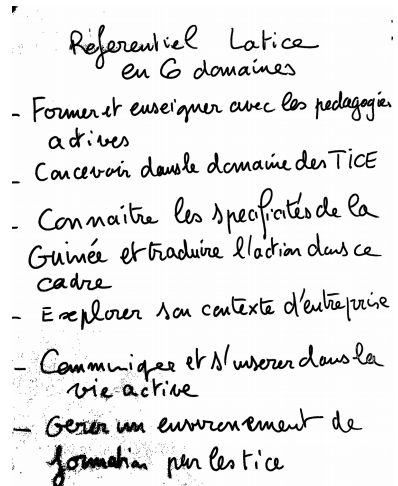 Réferentiel Latice
en 6 domaines
- Former et enseigner avec les pedagogies
actives
- Concevoir dans le domaine des TICE
- Connaitre les specificités de la
Guinée et traduire l'action dans ce
cadre
- Explorer son contexte d'entreprise
- Communiquer et s'inserer dans la
vie active
- Gerer un environement de
formation par les tice